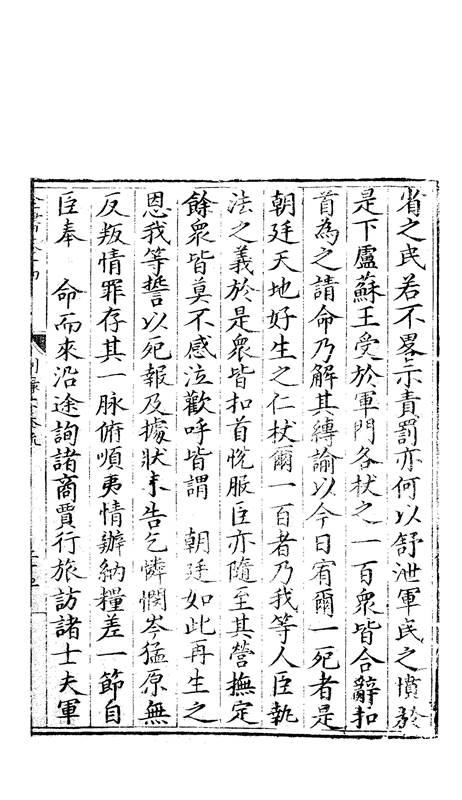 省之民若不畧示責罰亦何以舒泄軍民之憤於
是下盧蘇王受於軍門各杖之一百衆皆合辭扣
首為之請命乃解其縛諭以今日宥爾一死者是
朝廷天地好生之仁杖爾一百者乃我等人臣執
法之義於是衆皆扣首悅服臣亦隨至其營撫定
餘衆皆莫不感泣歡呼皆謂　朝廷如此再生之
恩我等誓以死報及據狀末告乞憐憫岑猛原無
反叛情罪存其一脉俯順夷情辦納糧差一節自
臣奉　命而來沿途詢諸商賈行旅訪諸士夫軍